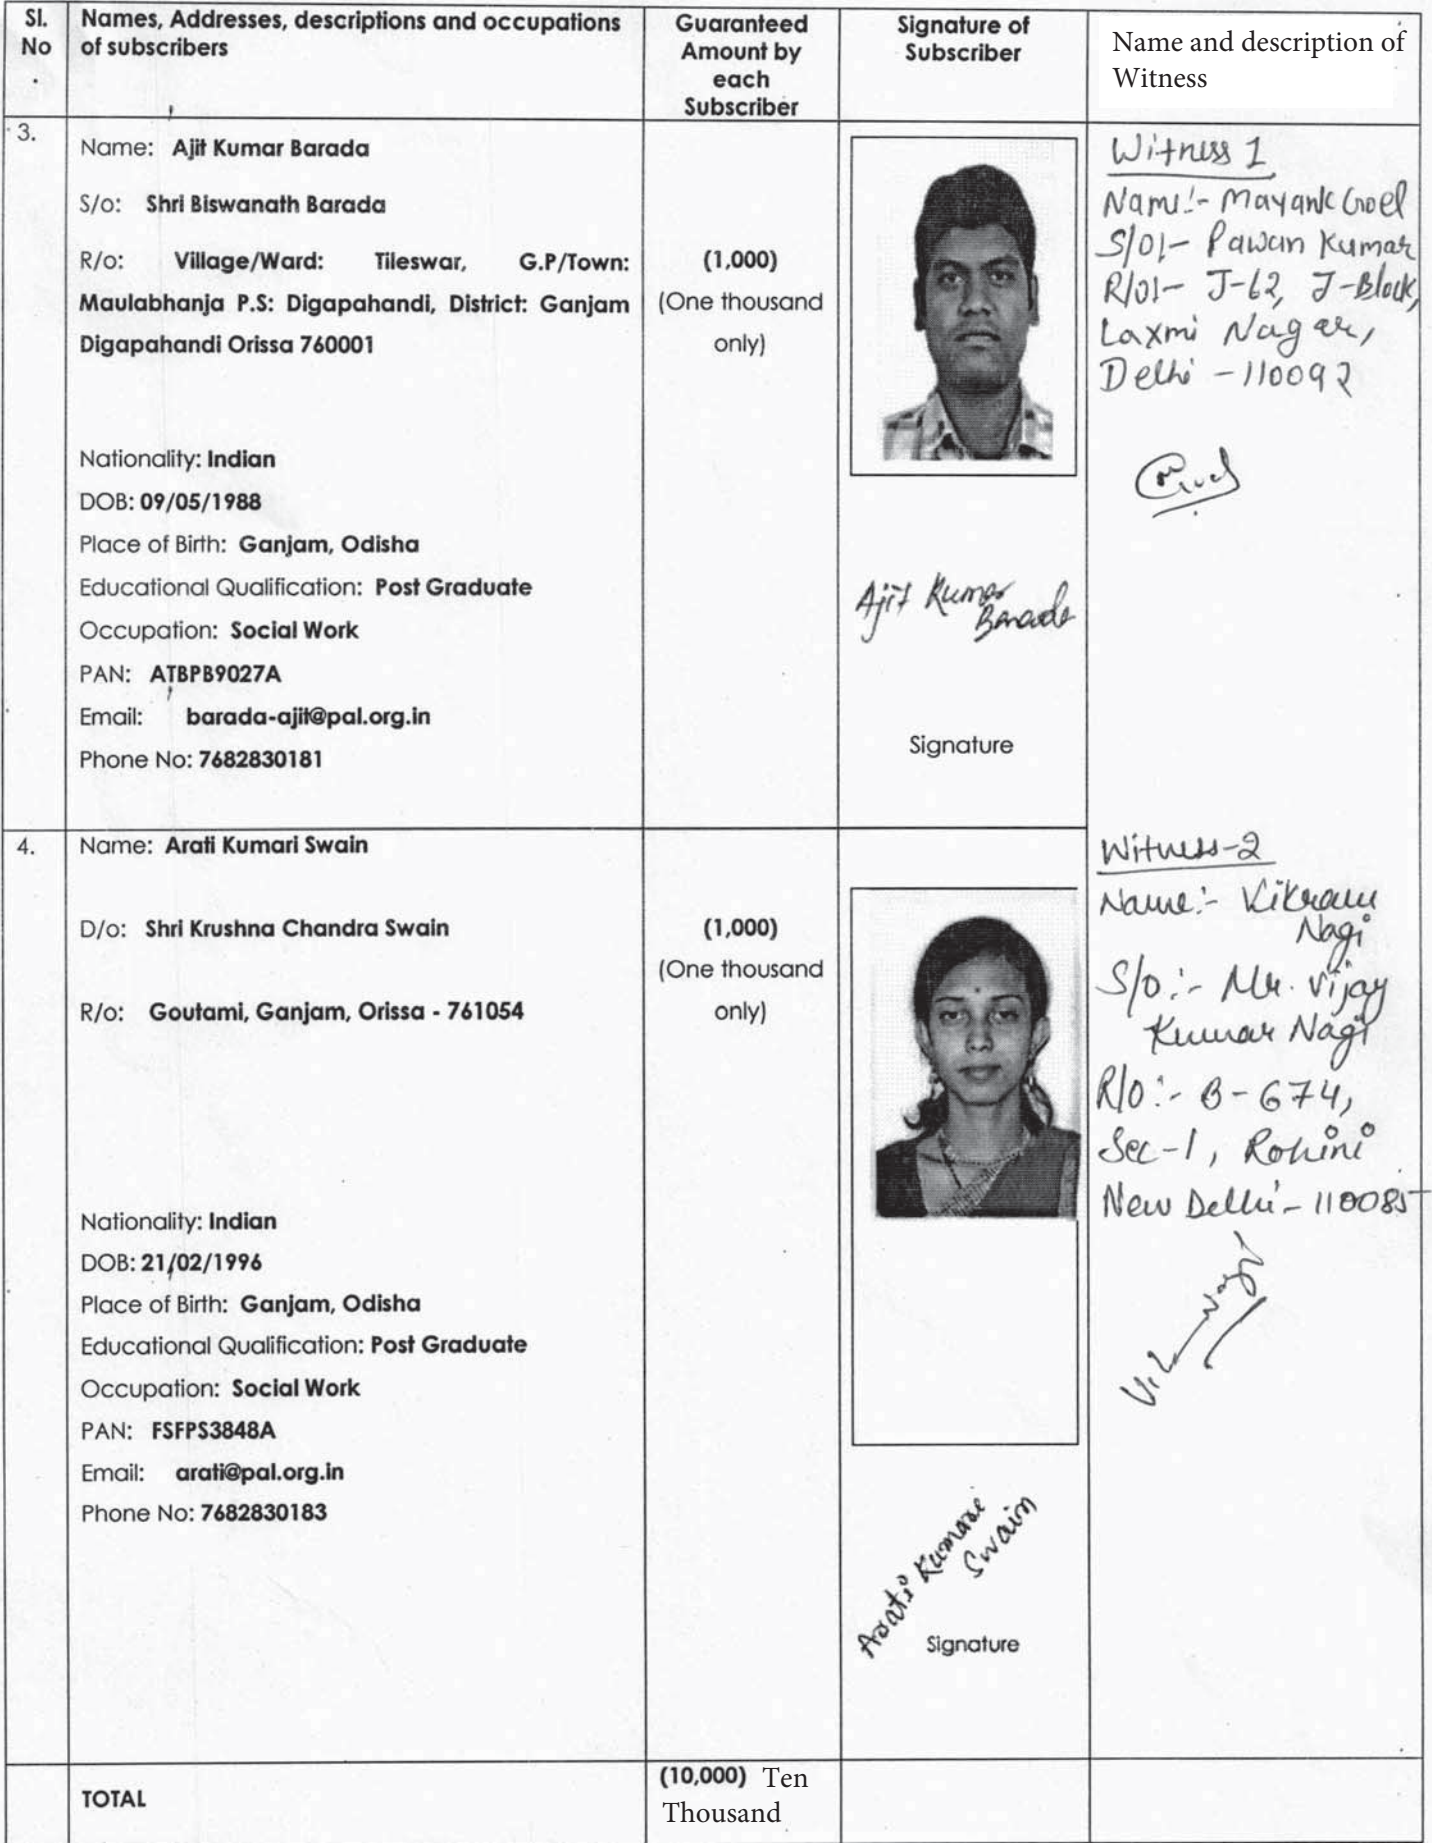 Sl. No .
Names, Addresses, descriptions and occupations
of subscribers
Guaranteed
Amount by
each
Subscriber
Signature of
Subscriber
Name and description of
Witness
3.
Name: Ajit Kumar Barada
S/o: Shri Biswanath Barada
R/o: Village/Ward: Tileswar, G.P/Town:
Maulabhanja P.S: Digapahandi, District: Ganjam
Digapahandi Orissa 760001
Nationality: Indian
DOB: 09/05/1988
Place of Birth: Ganjam, Odisha
Educational Qualification: Post Graduate
Occupation: Social Work
PAN: ATBPB9027A
Email: barada-ajit@pal.org.in
Phone No: 7682830181
(1,000)
(One thousand
only)
Ajit Kumar
Barada
Signature
Witness 1
Name:- Mayank Goel
S/o:- Pawan Kumar
R/o:- J-62, J-Block,
Laxmi Nagar,
Delhi - 110092
4.
Name: Arati Kumari Swain
D/o: Shri Krushna Chandra Swain
R/o: Goutami, Ganjam, Orissa - 761054
Nationality: Indian
DOB: 21/02/1996
Place of Birth: Ganjam, Odisha
Educational Qualification: Post Graduate
Occupation: Social Work
PAN: FSFPS3848A
Email: arati@pal.org.in
Phone No: 7682830183
(1,000)
(One thousand
only)
Arati Kumari
Swain
Signature
Witness-2
Name:- Vikram
Nagi
S/o:- Mr. Vijay
Kumar Nagi
R/o:- B-674,
Sec-1, Rohini
New Delhi - 110085
Nagi
TOTAL
(10,000) Ten
Thousand